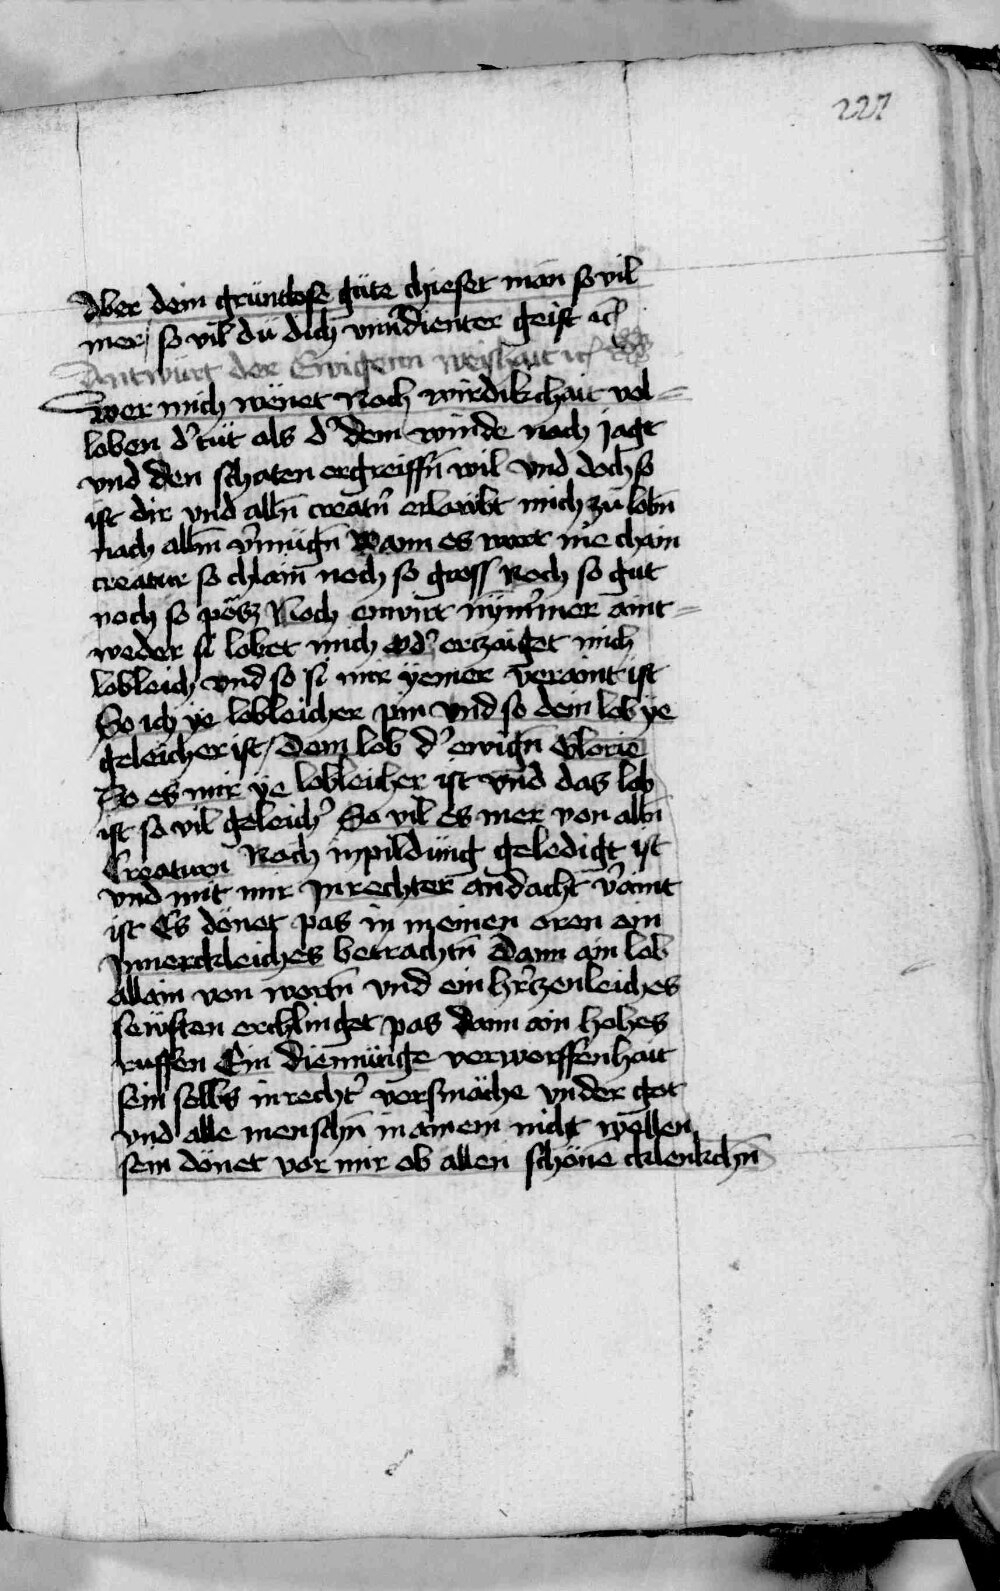 227
Aber dein gruntlose güte chieset man so vil
mer / so vil dü dich vnūdienter geist ⁊c̄
Antwürt der Ewigenn weishait ⁊c̄
Wer mich wënet Noch wirdikchait vol=
loben d' tüt als d' dem winde noch jagt
vnd den schaten ergreiffn̄ wil vnd doch so
ist dir vnd alln̄ creatn̄ erlawbt mich zu lobn̄
nach allm̄ v'mügn̄ Wann es wart nie chain
creatur so chlain noch so gross Noch so gut
noch so pösz Noch enwirt nym̄mer aint=
weder si lobet mich od' erzaiget mich
lobleich vnd so si mir yemer veraint ist
So ich ye lobleicher pin vnd so dein lob ÿe
geleicher ist / Dem lob d' ewign̄ Glorie
So es mir ÿe lobleicher ist vnd das lob
ist so vil geleich' So vil es mer von alln̄
Creaturn Noch inpildüng geledigt ist
vnd mit mir Jn rechter andacht v'aint
ist Es dönet pas in meinen oren ein
Jnnerckleiches betrachtn̄ Dann ain lob
allain von wortn̄ vnd ein h'rzenleiches
sewften erchlinget pas Dann ain hohes
ruffen Ein diemütige verworffenhait
sein selbs in recht' versmäche vnder got
vnd alle menschn̄ in ainem nicht wellen
sein dönet vor mir ob allen schöne cklenkchn̄